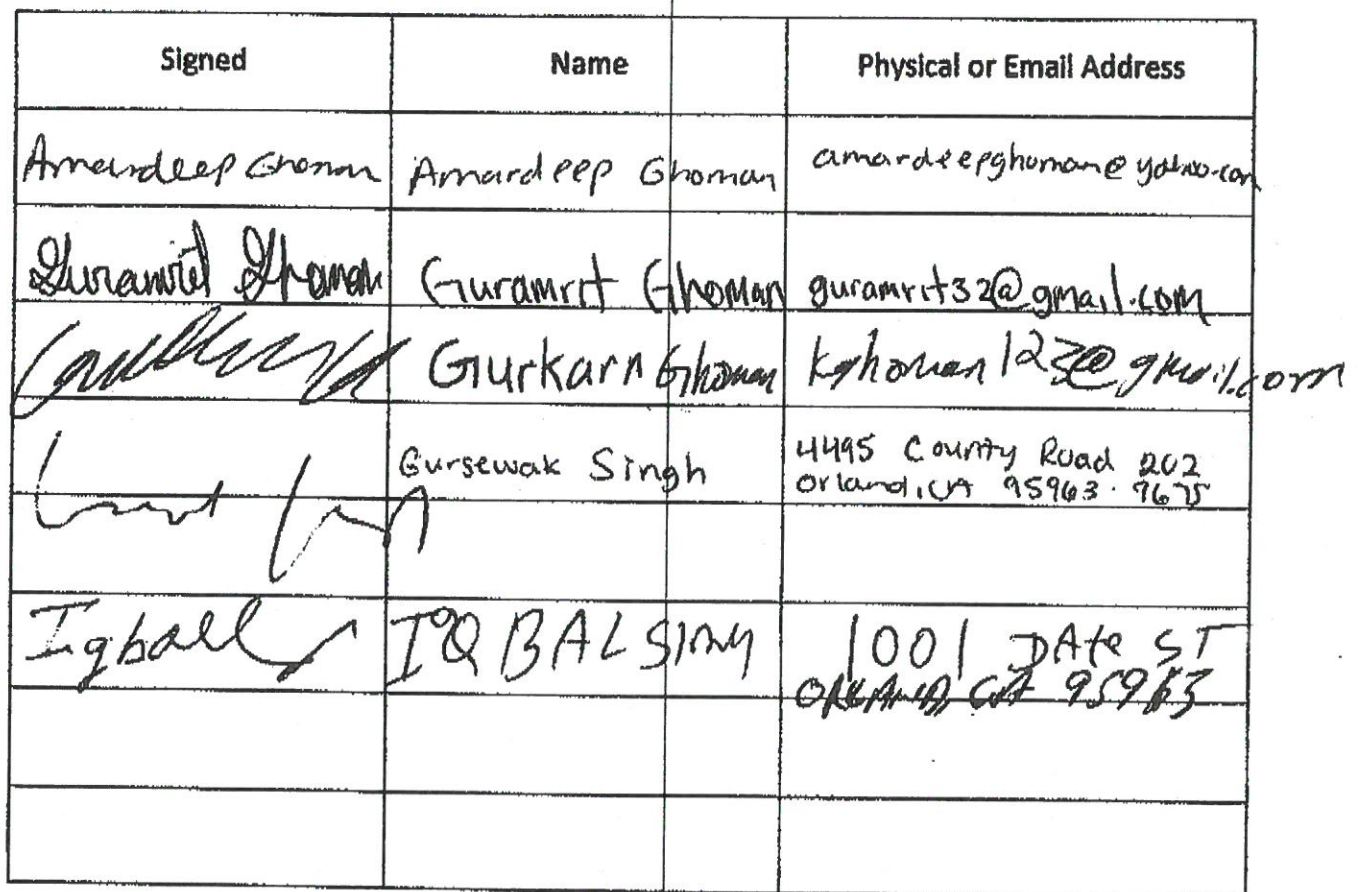 Signed Name Physical or Email Address
Amardeep Ghoman Amardeep Ghoman amardeepghoman@yahoo.com
Guramrit Ghoman Guramrit Ghoman guramrit32@gmail.com
Gurkarn Ghoman kghoman123@gmail.com
Gursewak Singh 4495 County Road 202
Orland, CA 95963-9675
Iqball IQBAL SINGH 1001 DAte ST
ORLAND, CA 95963